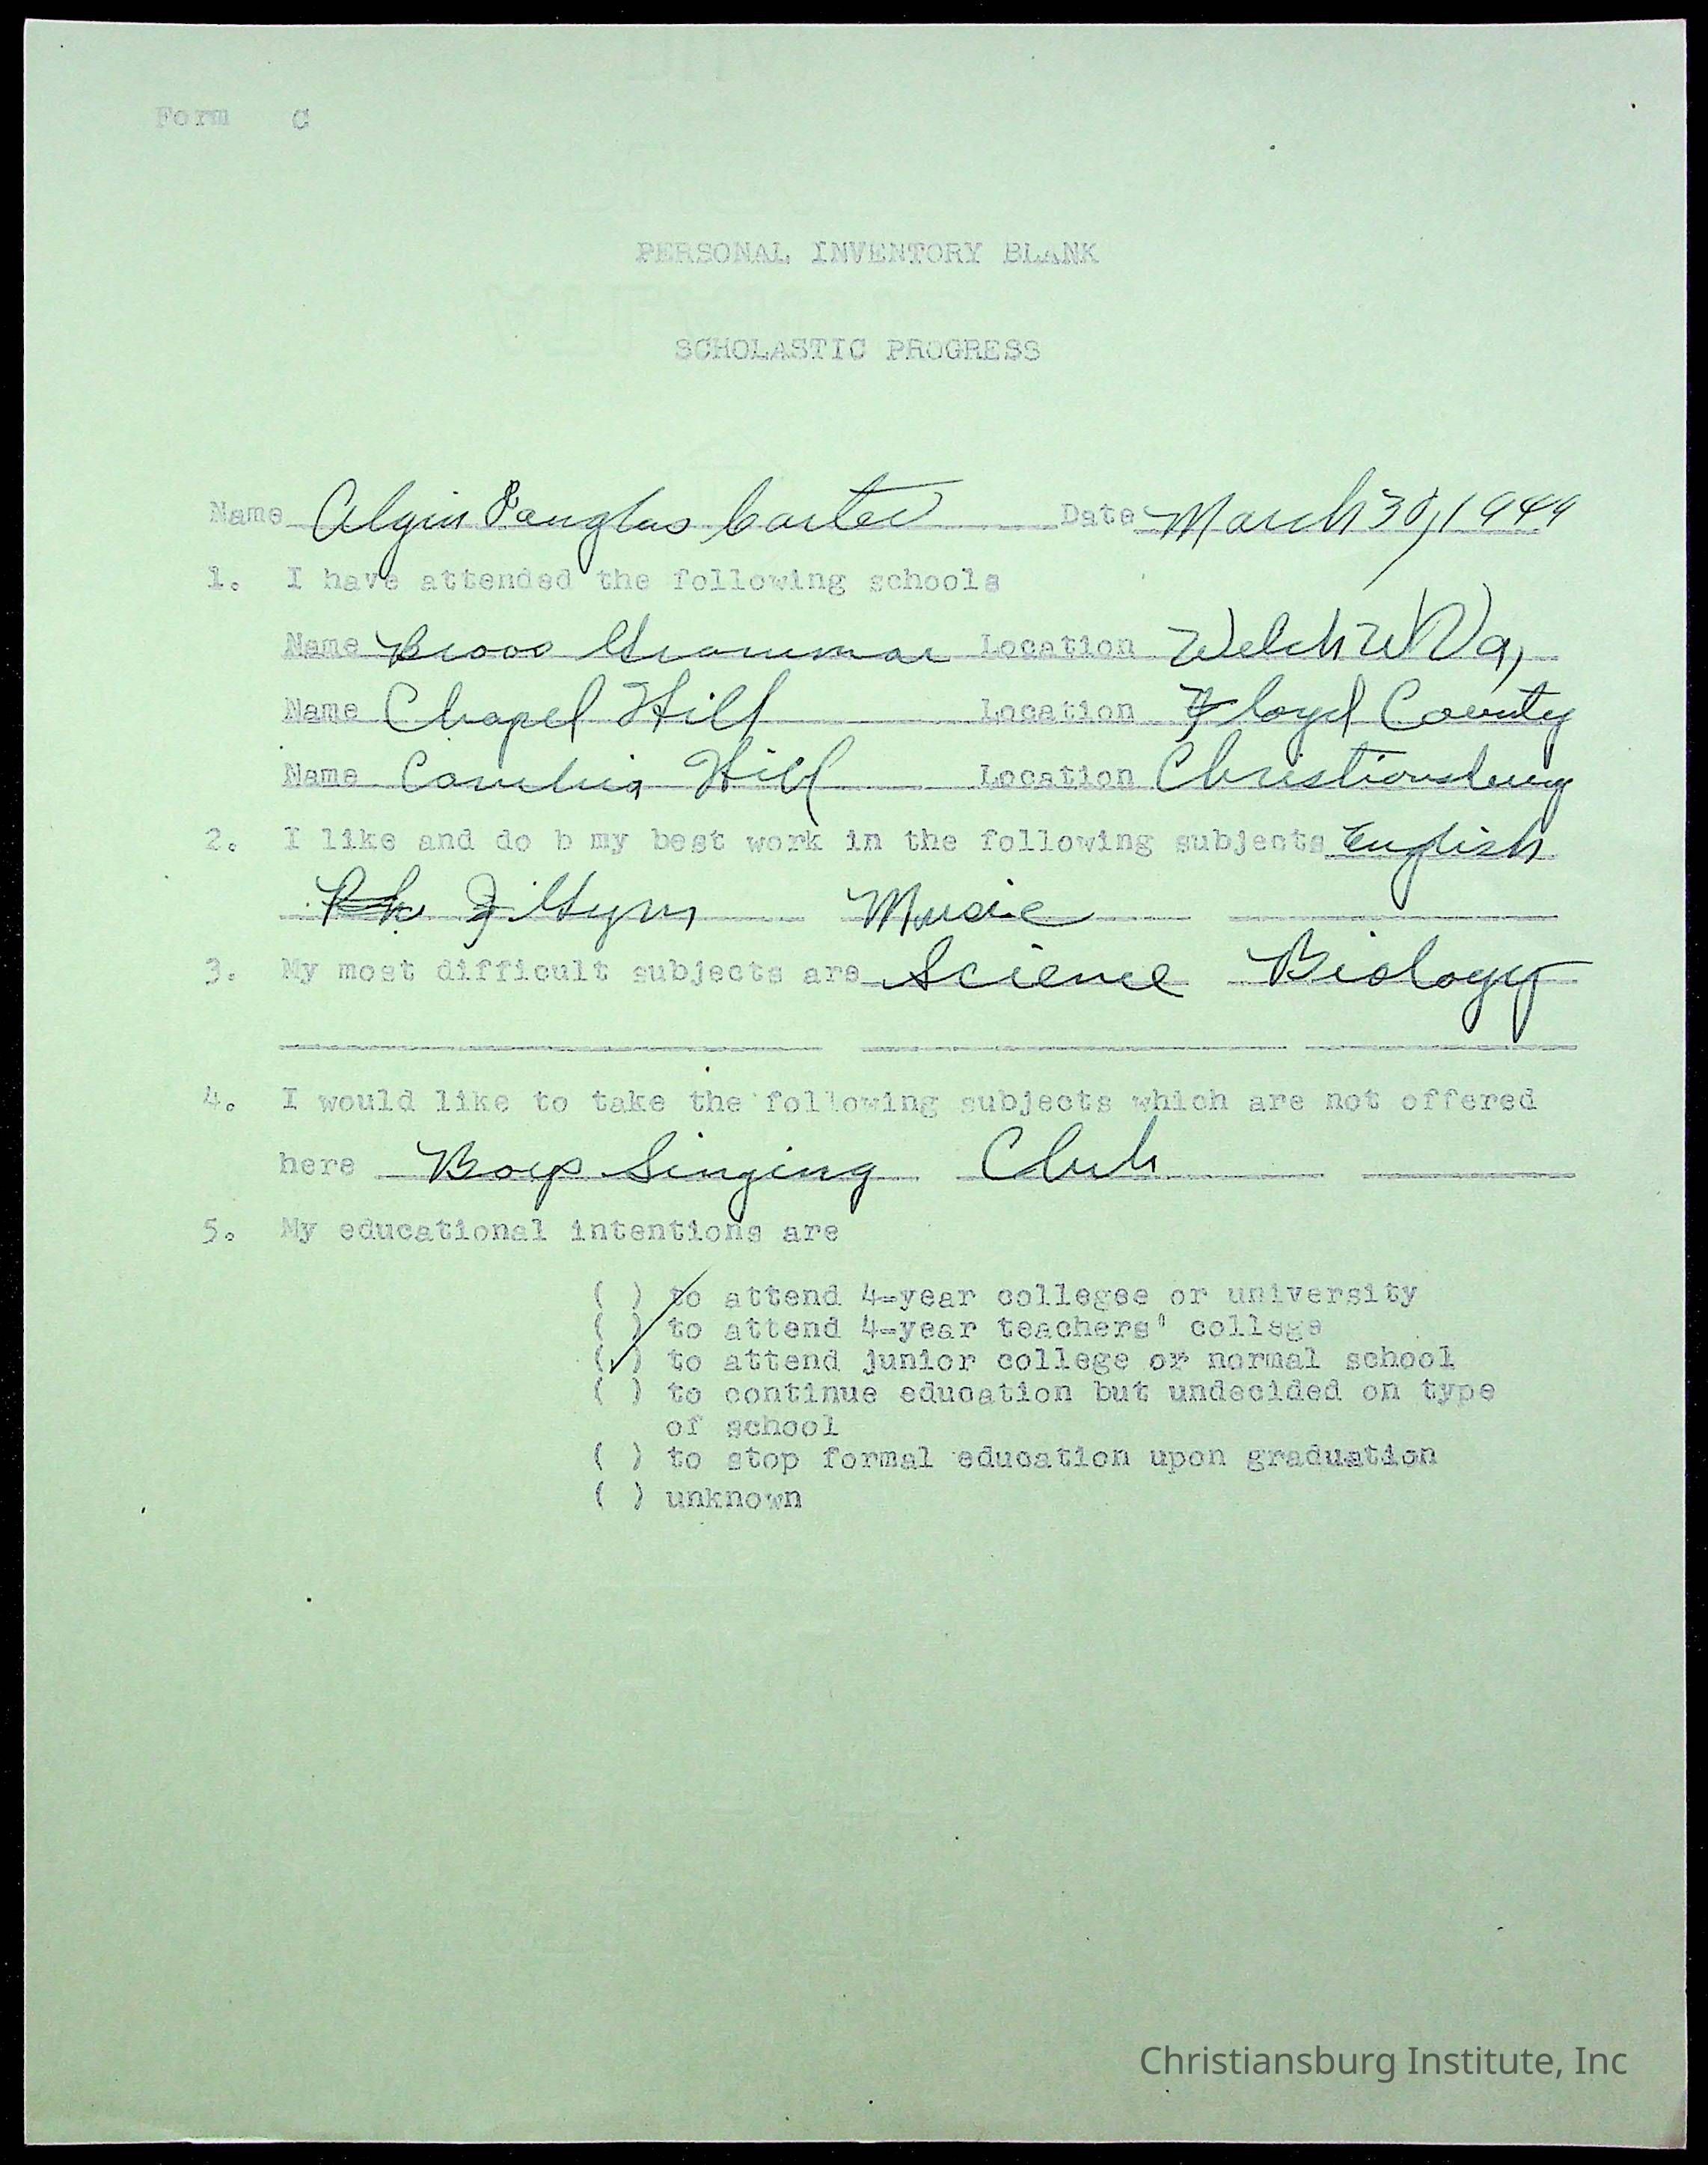 Form C
PERSONAL INVENTORY BLANK
SCHOLASTIC PROGRESS
Name Algin Douglas Carter Date March 30, 1949
1. I have attended the following schools
Name Grammar Location Welch W Va,
Name Chapel Hill Location Floyd County
Name Hill Location Christiansburg
2. I like and do b my best work in the following subjects English
Gym Music
3. My most difficult subjects are Science Biology
4. I would like to take the following subjects which are not offered
here Boys Singing Club
5. My educational intentions are
( ) to attend 4-year collegee or university
( ) to attend 4-year teachers' college
(✓) to attend junior college or normal school
( ) to continue education but undecided on type
of school
( ) to stop formal education upon graduation
( ) unknown
Christiansburg Institute, Inc